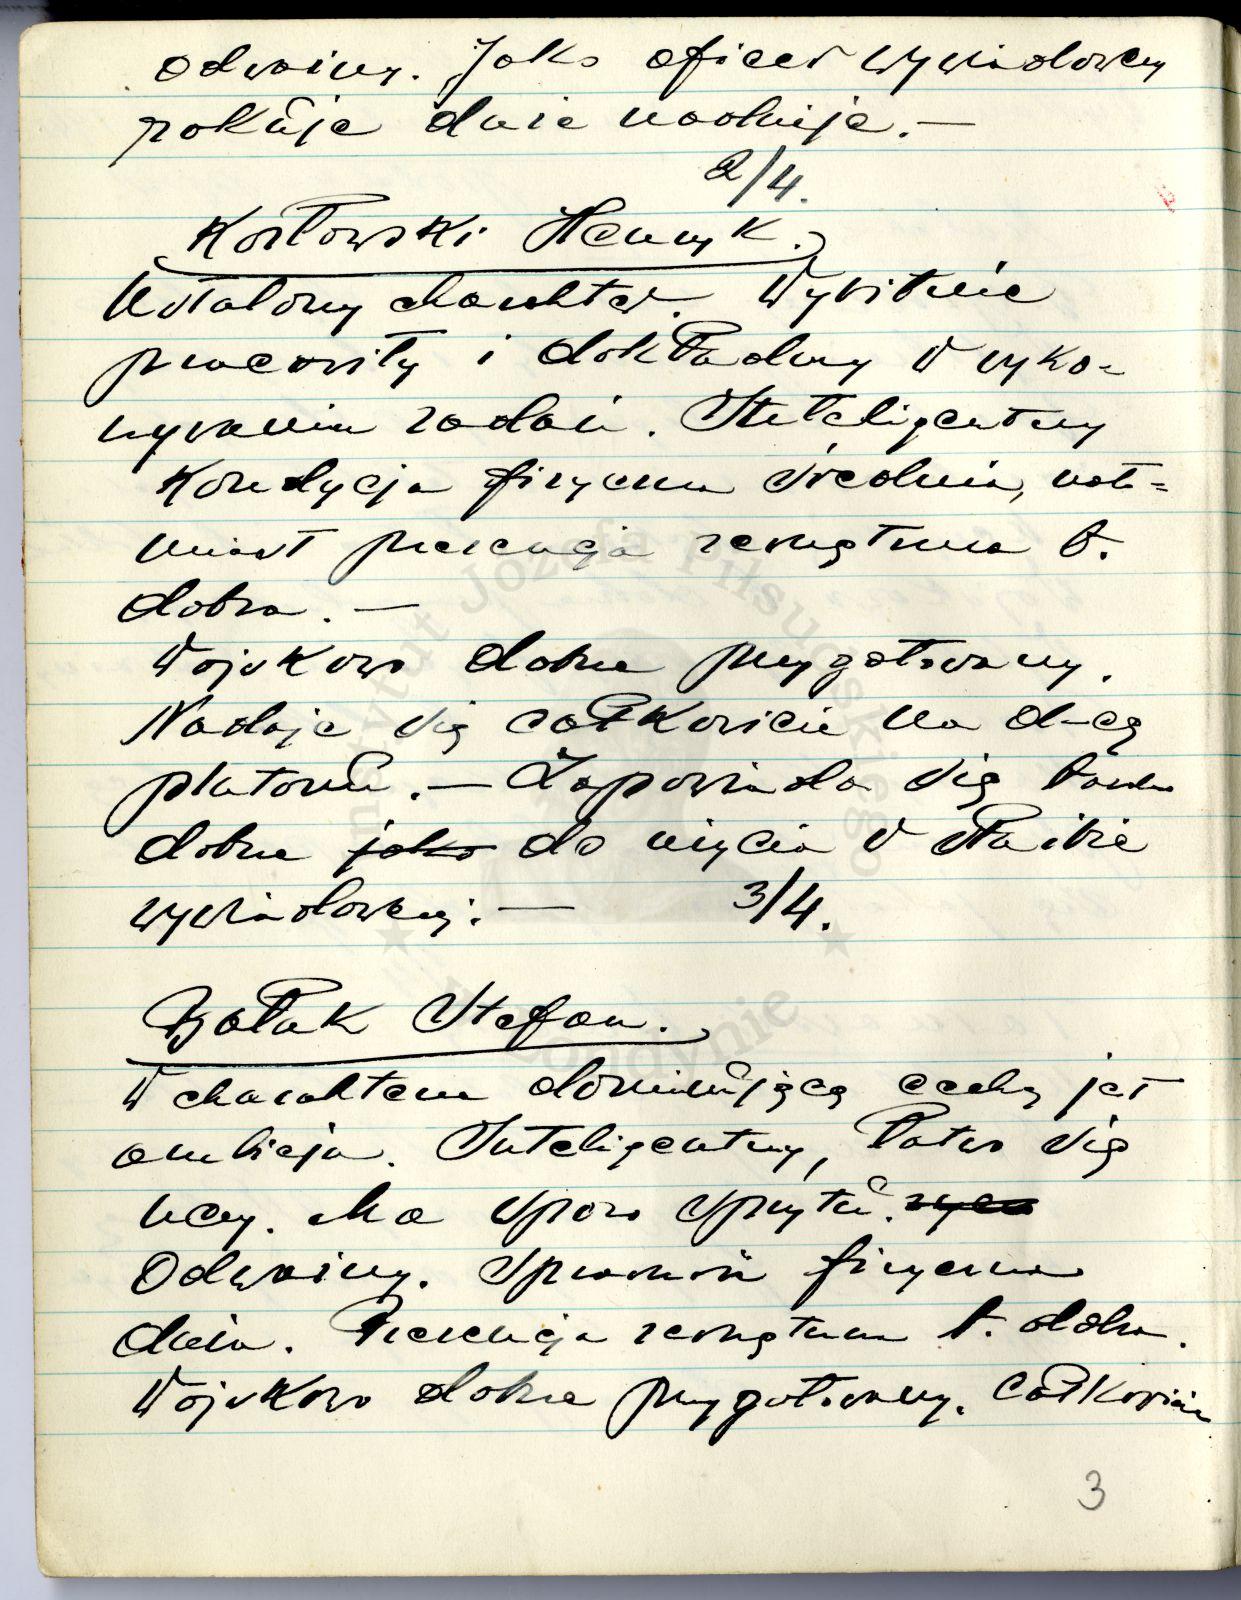 odważny. Jako oficer wywiadowczy
rokuje duże nadzieje. —
2/4.
Kozłowski Henryk.
Ustalony charakter. Wybitnie
pracowity i dokładny w wyko-
nywaniu zadań. Inteligentny
Kondycja fizyczna średnia, nato=
miast prezencja zewnętrzna b.
dobra. —
Wojskowo dobrze przygotowany.
Nadaje się całkowicie na d-cę
plutonu. — Zapowiada się bardzo
dobrze jako do użycia w służbie
wywiadowczej. — 3/4.
Bałuk Stefan.
W charakterze dominującą cechą jest
ambicja. Inteligentny, łatwo się
uczy. Ma sporo sprytu.
Odważny. Sprawność fizyczna
duża. Prezencja zewnętrzna b. dobra.
Wojskowo dobrze przygotowany. Całkowicie
3
Instytut Józefa Piłsudskiego
w Londynie